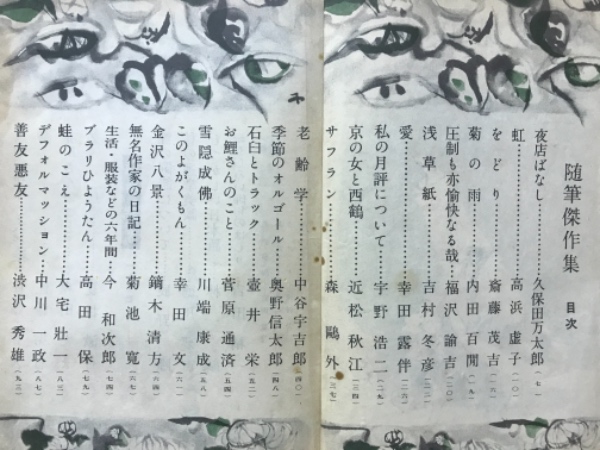 随筆傑作集 目次
夜店ばなし……久保田万太郎（七）
虹……高浜虚子（一〇）
をどり……斎藤茂吉（一六）
菊の雨……内田百閒（一九）
圧制も亦愉快なる哉……福沢諭吉（二〇）
浅草紙……吉村冬彦（二二）
愛……幸田露伴（二六）
私の月評について……宇野浩二（二九）
京の女と西鶴……近松秋江（三四）
サフラン……森鷗外（三七）
老齢学……中谷宇吉郎（四〇）
季節のオルゴール……奥野信太郎（四八）
石臼とトラック……壺井栄（五二）
お鯉さんのこと……菅原通済（五四）
雪隠成佛……川端康成（五八）
このよがくもん……幸田文（六一）
金沢八景……鏑木清方（六四）
無名作家の日記……菊池寛（六七）
生活・服装などの六年間……今和次郎（七四）
ブラリひょうたん……高田保（七九）
蛙のこえ……大宅壮一（八三）
デフォルマッション……中川一政（八七）
善友悪友……渋沢秀雄（九三）